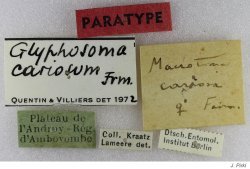 PARATYPE
Glyphosoma
cariosum
Frm.
QUENTIN & VILLIERS det 1972
Plateau de
l'Androy-Rég.
d'Ambovombe
Coll. Kraatz
Lameere det.
Dtsch. Entomol.
Institut Berlin
Fairm.
J. Pirkl